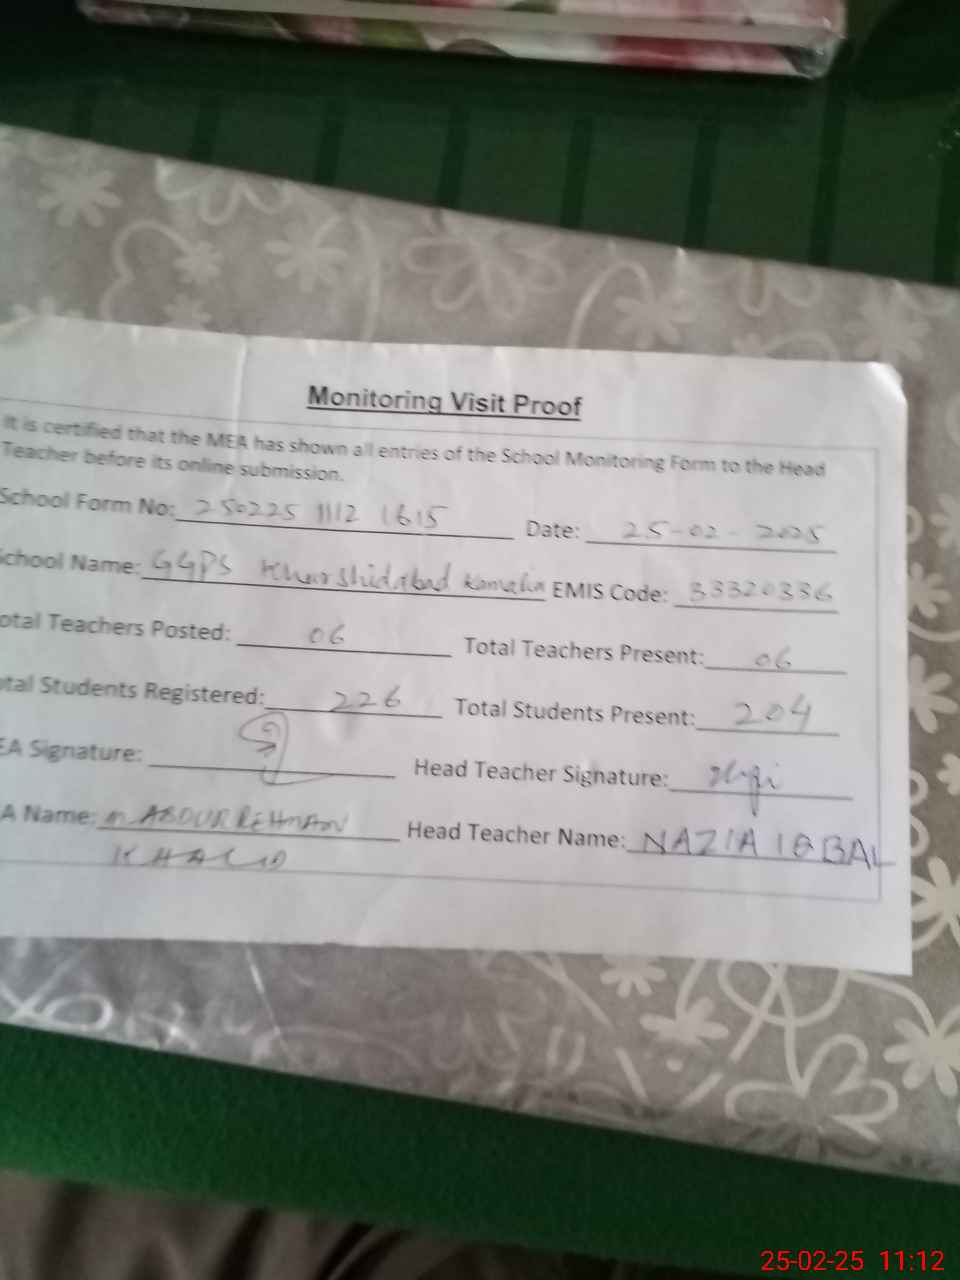 Monitoring Visit Proof
It is certified that the MEA has shown all entries of the School Monitoring Form to the Head
Teacher before its online submission.
School Form No: 250225 1112 1615 Date: 25-02-2025
School Name: GGPS Khurshidabad Kamalia EMIS Code: 33320336
otal Teachers Posted: 06 Total Teachers Present: 06
otal Students Registered: 226 Total Students Present: 204
EA Signature: Head Teacher Signature:
A Name: M ABDUR REHMAN Head Teacher Name: NAZIA IQBAL
KHALID
25-02-25 11:12